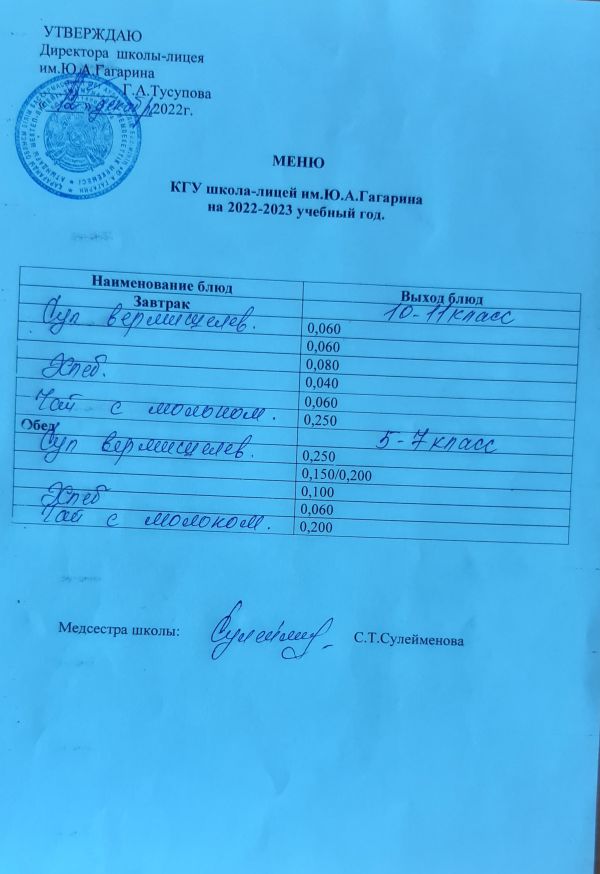 УТВЕРЖДАЮ
Директора школы-лицея
им.Ю.А.Гагарина
Г.А.Тусупова
« 12 » декабр 2022г.
МЕНЮ
КГУ школа-лицей им.Ю.А.Гагарина
на 2022-2023 учебный год.
Наименование блюд Выход блюд
Завтрак 10-11 класс
Суп вермишелев. 0,060
0,060
Хлеб. 0,080
0,040
Чай с молоком. 0,060
0,250
Обед 5-7 класс
Суп вермишелев. 0,250
0,150/0,200
Хлеб 0,100
0,060
Чай с молоком. 0,200
Медсестра школы: С.Т.Сулейменова